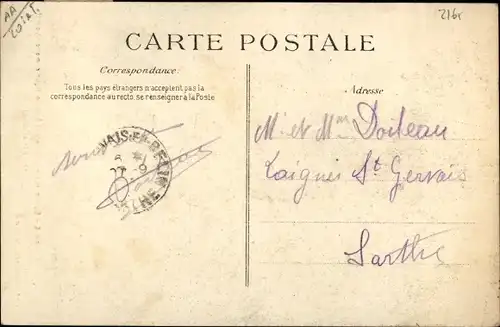 AA
216r
CARTE POSTALE
Correspondance:
Tous les pays étrangers n'acceptent pas la
correspondance au recto, se renseigner à la Poste
Adresse
M. et Mme Doiteau
Laigné St Gervais
Sarthe